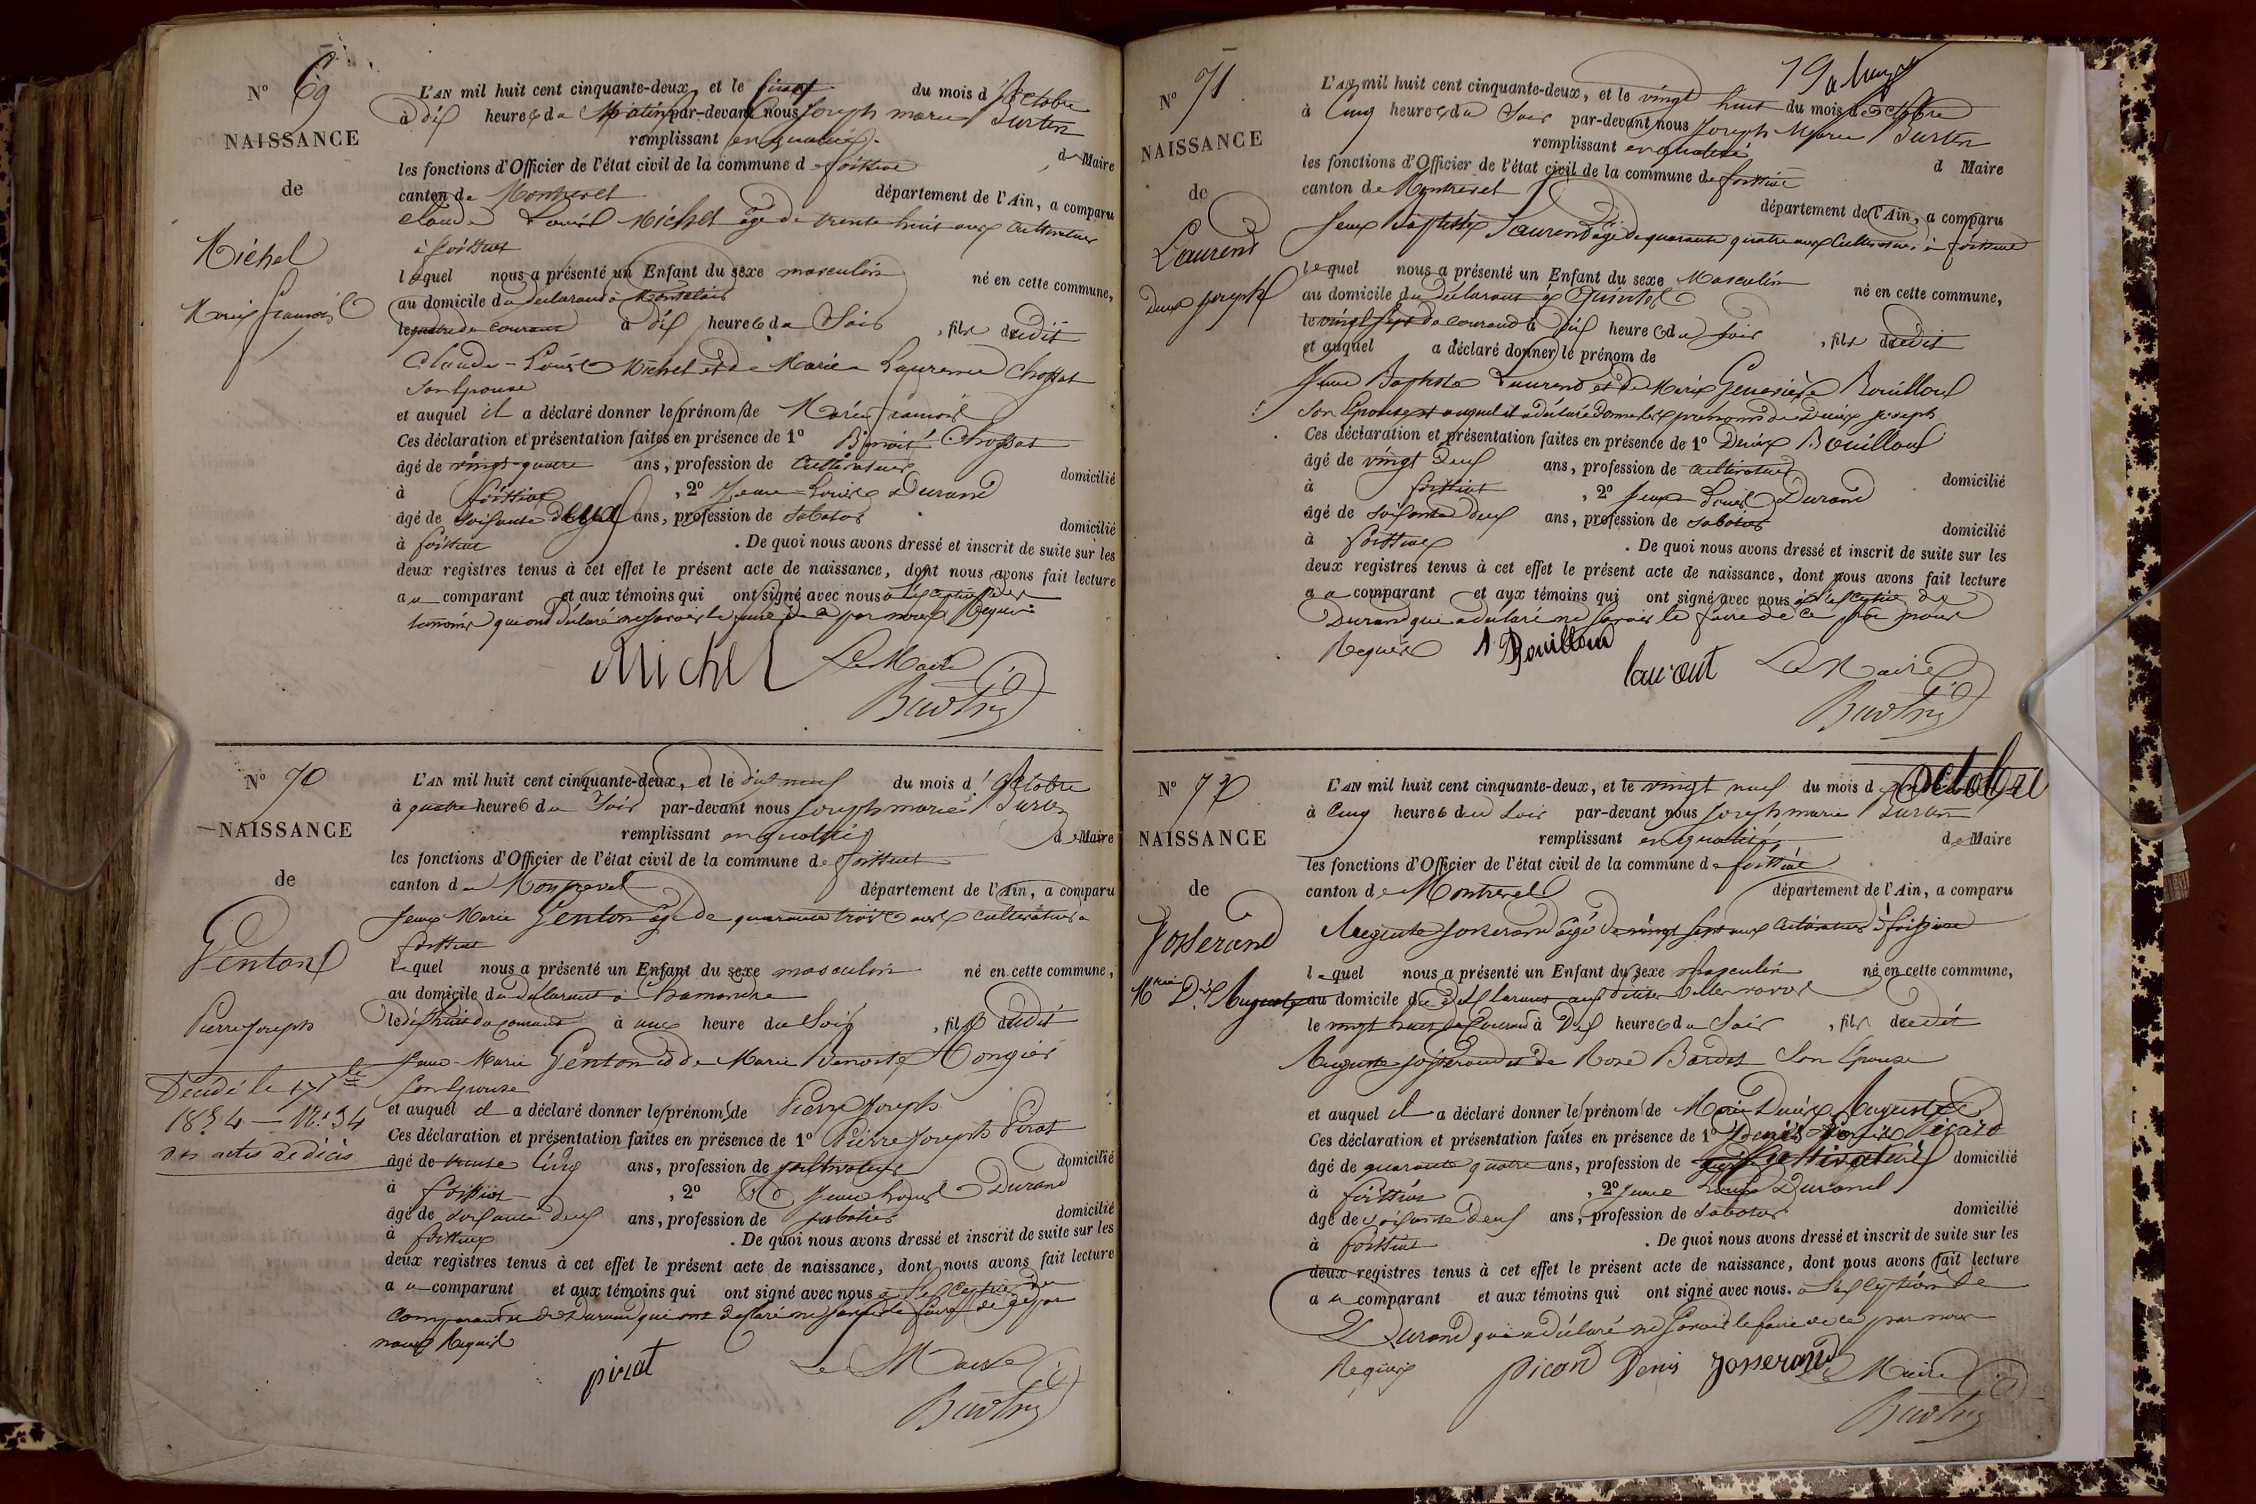 N° 69
NAISSANCE
de
Michel
Marie François
L'AN mil huit cent cinquante-deux, et le du mois d'Octobre
à dix heures du Matin par-devant nous Joseph marie Burtin
remplissant en qualité de Maire
les fonctions d'Officier de l'état civil de la commune de foissiat
canton de Montrevel département de l'Ain, a comparu
Claude Louis Michel âgé de trente huit ans cultivateur
à foissiat
lequel nous a présenté un Enfant du sexe masculin né en cette commune,
au domicile du declarant à
le du courant à dix heures du Soir, fils dudit
Claude-Louis Michel et de Marie Laurence Chossat
Son Epouse
et auquel il a déclaré donner les prénoms de Marie françois
Ces déclaration et présentation faites en présence de 1° Benoit Chossat
âgé de vingt-quatre ans, profession de Cultivateur domicilié
à foissiat, 2° Jean-Louis Durand
âgé de soixante deux ans, profession de sabotier domicilié
à foissiat. De quoi nous avons dressé et inscrit de suite sur les
deux registres tenus à cet effet le présent acte de naissance, dont nous avons fait lecture
au comparant et aux témoins qui ont signé avec nous à l'exception des
temoins qui ont déclaré ne savoir le faire de ce par nous Requis
Michel Le Maire
Burtin
N° 70
NAISSANCE
de
Genton
Pierre Joseph
Décédé le
1854 - N° 34
des actes de décès
L'AN mil huit cent cinquante-deux, et le dix neuf du mois d'Octobre
à quatre heures du Soir par-devant nous Joseph marie Burtin
remplissant en qualité de Maire
les fonctions d'Officier de l'état civil de la commune de foissiat
canton de Montrevel département de l'Ain, a comparu
Jean Marie Genton âgé de quarante trois ans cultivateur à
foissiat
lequel nous a présenté un Enfant du sexe masculin né en cette commune,
au domicile du déclarant à
le dix huit du courant à une heure du Soir, fils dudit
Jean-Marie Genton et de Marie Benoite Mongier
Son Epouse
et auquel il a déclaré donner les prénoms de Pierre Joseph
Ces déclaration et présentation faites en présence de 1° Pierre Joseph Pirat
âgé de trente cinq ans, profession de cultivateur domicilié
à foissiat, 2° Jean Louis Durand
âgé de soixante deux ans, profession de sabotier domicilié
à foissiat. De quoi nous avons dressé et inscrit de suite sur les
deux registres tenus à cet effet le présent acte de naissance, dont nous avons fait lecture
au comparant et aux témoins qui ont signé avec nous à l'exception du
comparant et de Durand qui ont déclaré ne savoir le faire de ce par
nous Requis
pirat Le Maire
Burtin
N° 71
NAISSANCE
de
Laurent
Denis joseph
L'AN mil huit cent cinquante-deux, et le vingt huit du mois d'Octobre
à Cinq heures du Soir par-devant nous Joseph Marie Burtin
remplissant en qualité d Maire
les fonctions d'Officier de l'état civil de la commune de foissiat
canton de Montrevel département de l'Ain, a comparu
Jean Baptiste Laurent âgé de quarante quatre ans Cultivateur à foissiat
lequel nous a présenté un Enfant du sexe Masculin né en cette commune,
au domicile du déclarant à
le vingt sept du courant à dix heures du soir, fils dudit
et auquel a déclaré donner le prénom de
Jean Baptiste Laurent et de Marie Geneviève Bouilloud
Son Epouse et auquel il a déclaré donner les prénoms de Denis joseph
Ces déclaration et présentation faites en présence de 1° Denis Bouilloud
âgé de vingt deux ans, profession de cultivateur domicilié
à foissiat, 2° Jean-Louis Durand
âgé de soixante deux ans, profession de sabotier domicilié
à foissiat. De quoi nous avons dressé et inscrit de suite sur les
deux registres tenus à cet effet le présent acte de naissance, dont nous avons fait lecture
au comparant et aux témoins qui ont signé avec nous à l'exception de
Durand qui a déclaré ne savoir le faire de ce par nous
Requis Bouilloud laurent Le Maire
Burtin
N° 72
NAISSANCE
de
Josserand
Mrie Dis Auguste
L'AN mil huit cent cinquante-deux, et le vingt neuf du mois d octobre
à Cinq heures du Soir par-devant nous Joseph marie Burtin
remplissant en qualité de Maire
les fonctions d'Officier de l'état civil de la commune de foissiat
canton de Montrevel département de l'Ain, a comparu
Auguste Josserand âgé de vingt sept ans Cultivateur à foissiat
lequel nous a présenté un Enfant du sexe Masculin né en cette commune,
au domicile du déclarant
le vingt huit du Courant à Dix heures du Soir, fils dudit
Auguste Josserand et de Rose Bardet Son Epouse
et auquel il a déclaré donner les prénoms de Marie Denis Auguste
Ces déclaration et présentation faites en présence de 1° Denis Picard
âgé de quarante quatre ans, profession de Cultivateur domicilié
à foissiat, 2° Jean Louis Durand
âgé de soixante deux ans, profession de sabotier domicilié
à foissiat. De quoi nous avons dressé et inscrit de suite sur les
deux registres tenus à cet effet le présent acte de naissance, dont nous avons fait lecture
au comparant et aux témoins qui ont signé avec nous à l'exception de
Durand qui a déclaré ne savoir le faire de ce par nous
Requis picard Denis Josserand Le Maire
Burtin